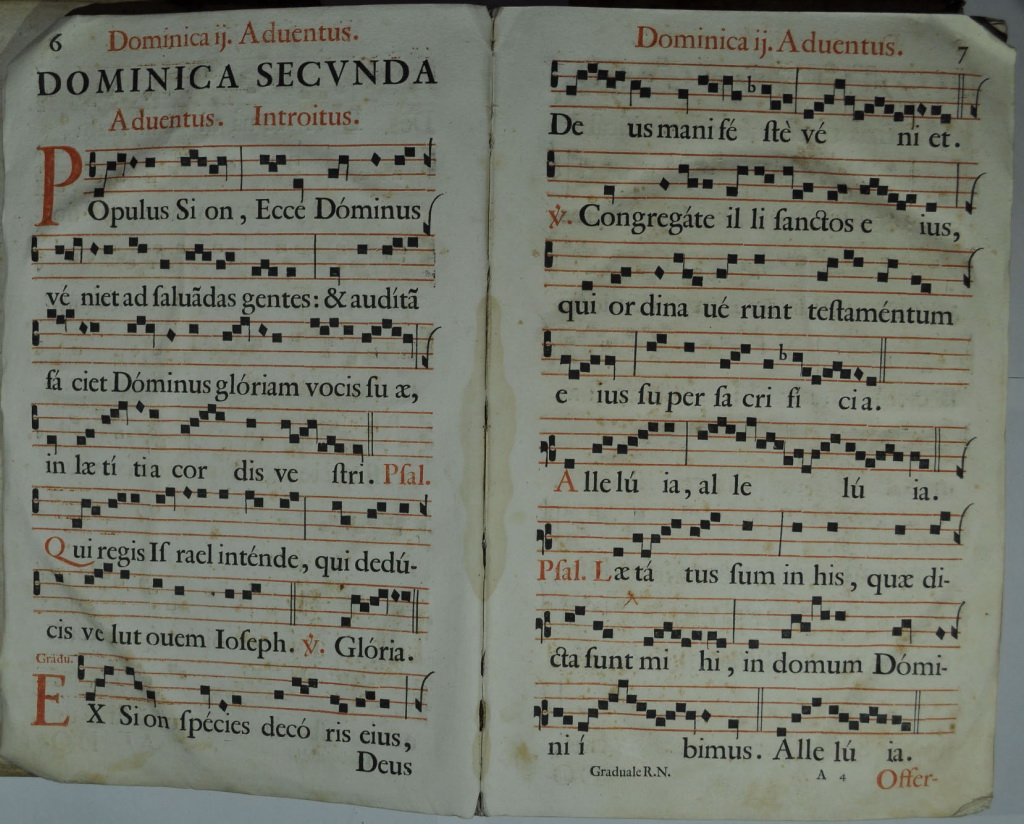 6
Dominica ij. Aduentus.
DOMINICA SECVNDA
Aduentus. Introitus.
POpulus Si on, Ecce Dóminus
vé niet ad ſaluãdas gentes: & audítã
fá ciet Dóminus glóriam vocis ſu æ,
in læ tí tia cor dis ve ſtri. Pſal.
Qui regis Iſ rael inténde, qui dedú-
cis ve lut ouem Ioſeph. ℣. Glória.
Gradu.
EX Sion ſpécies decó ris eius,
Deus
Dominica ij. Aduentus.
7
De us mani fé ſtè vé ni et.
℣. Congregáte il li ſanctos e ius,
qui or dina ué runt teſtaméntum
e ius ſu per ſa cri fi ci a.
Alle lú ia, al le lú ia.
Pſal. Læ tá tus ſum in his, quæ di-
cta ſunt mi hi, in domum Dómi-
ni í bimus. Alle lú ia.
Graduale R.N.
A 4
Offer-